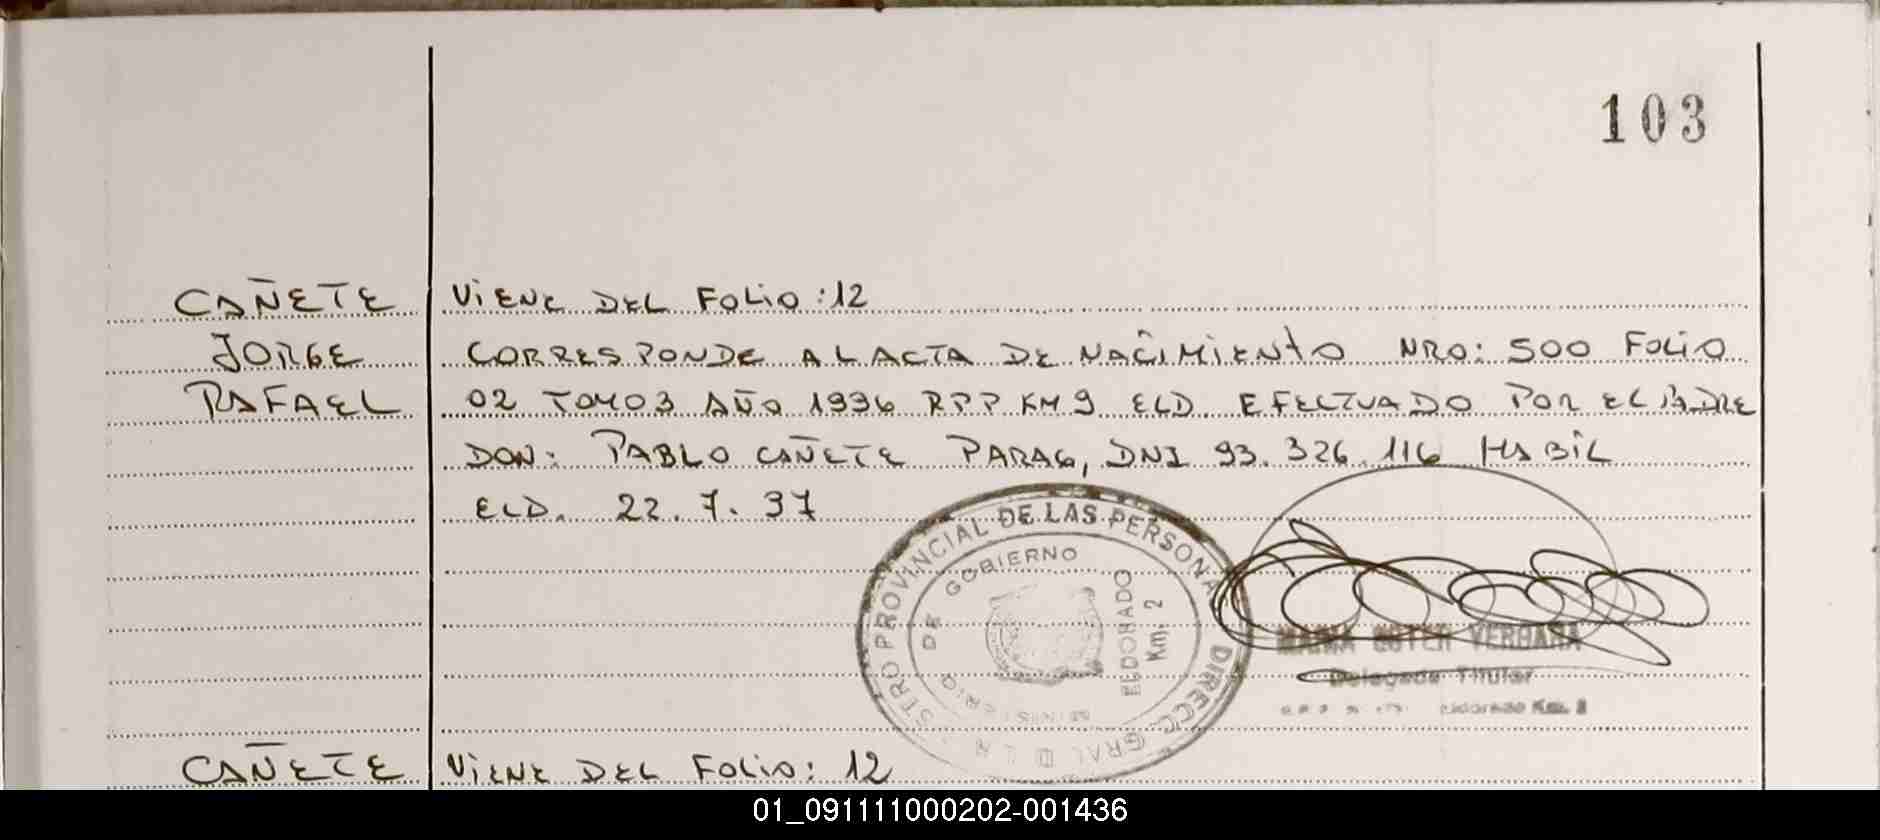 103
CAÑETE VIENE DEL FOLIO: 12
JORGE CORRESPONDE A L ACTA DE NACIMIENTO NRO: 500 FOLIO
RAFAEL 02 TOMO 3 AÑO 1996 RPP KM 9 ELD. EFECTUADO POR EL PADRE
DON: PABLO CAÑETE PARAG, DNI 93.326.116 HABIL
ELD. 22.7.97
PROVINCIAL DE LAS PERSONA
DIRECC. GRAL
MINISTERIO DE GOBIERNO
ELDORADO
Km. 2
VERGARA
Delegada Titular
Eldorado Km. 2
CAÑETE VIENE DEL FOLIO: 12
01_091111000202-001436